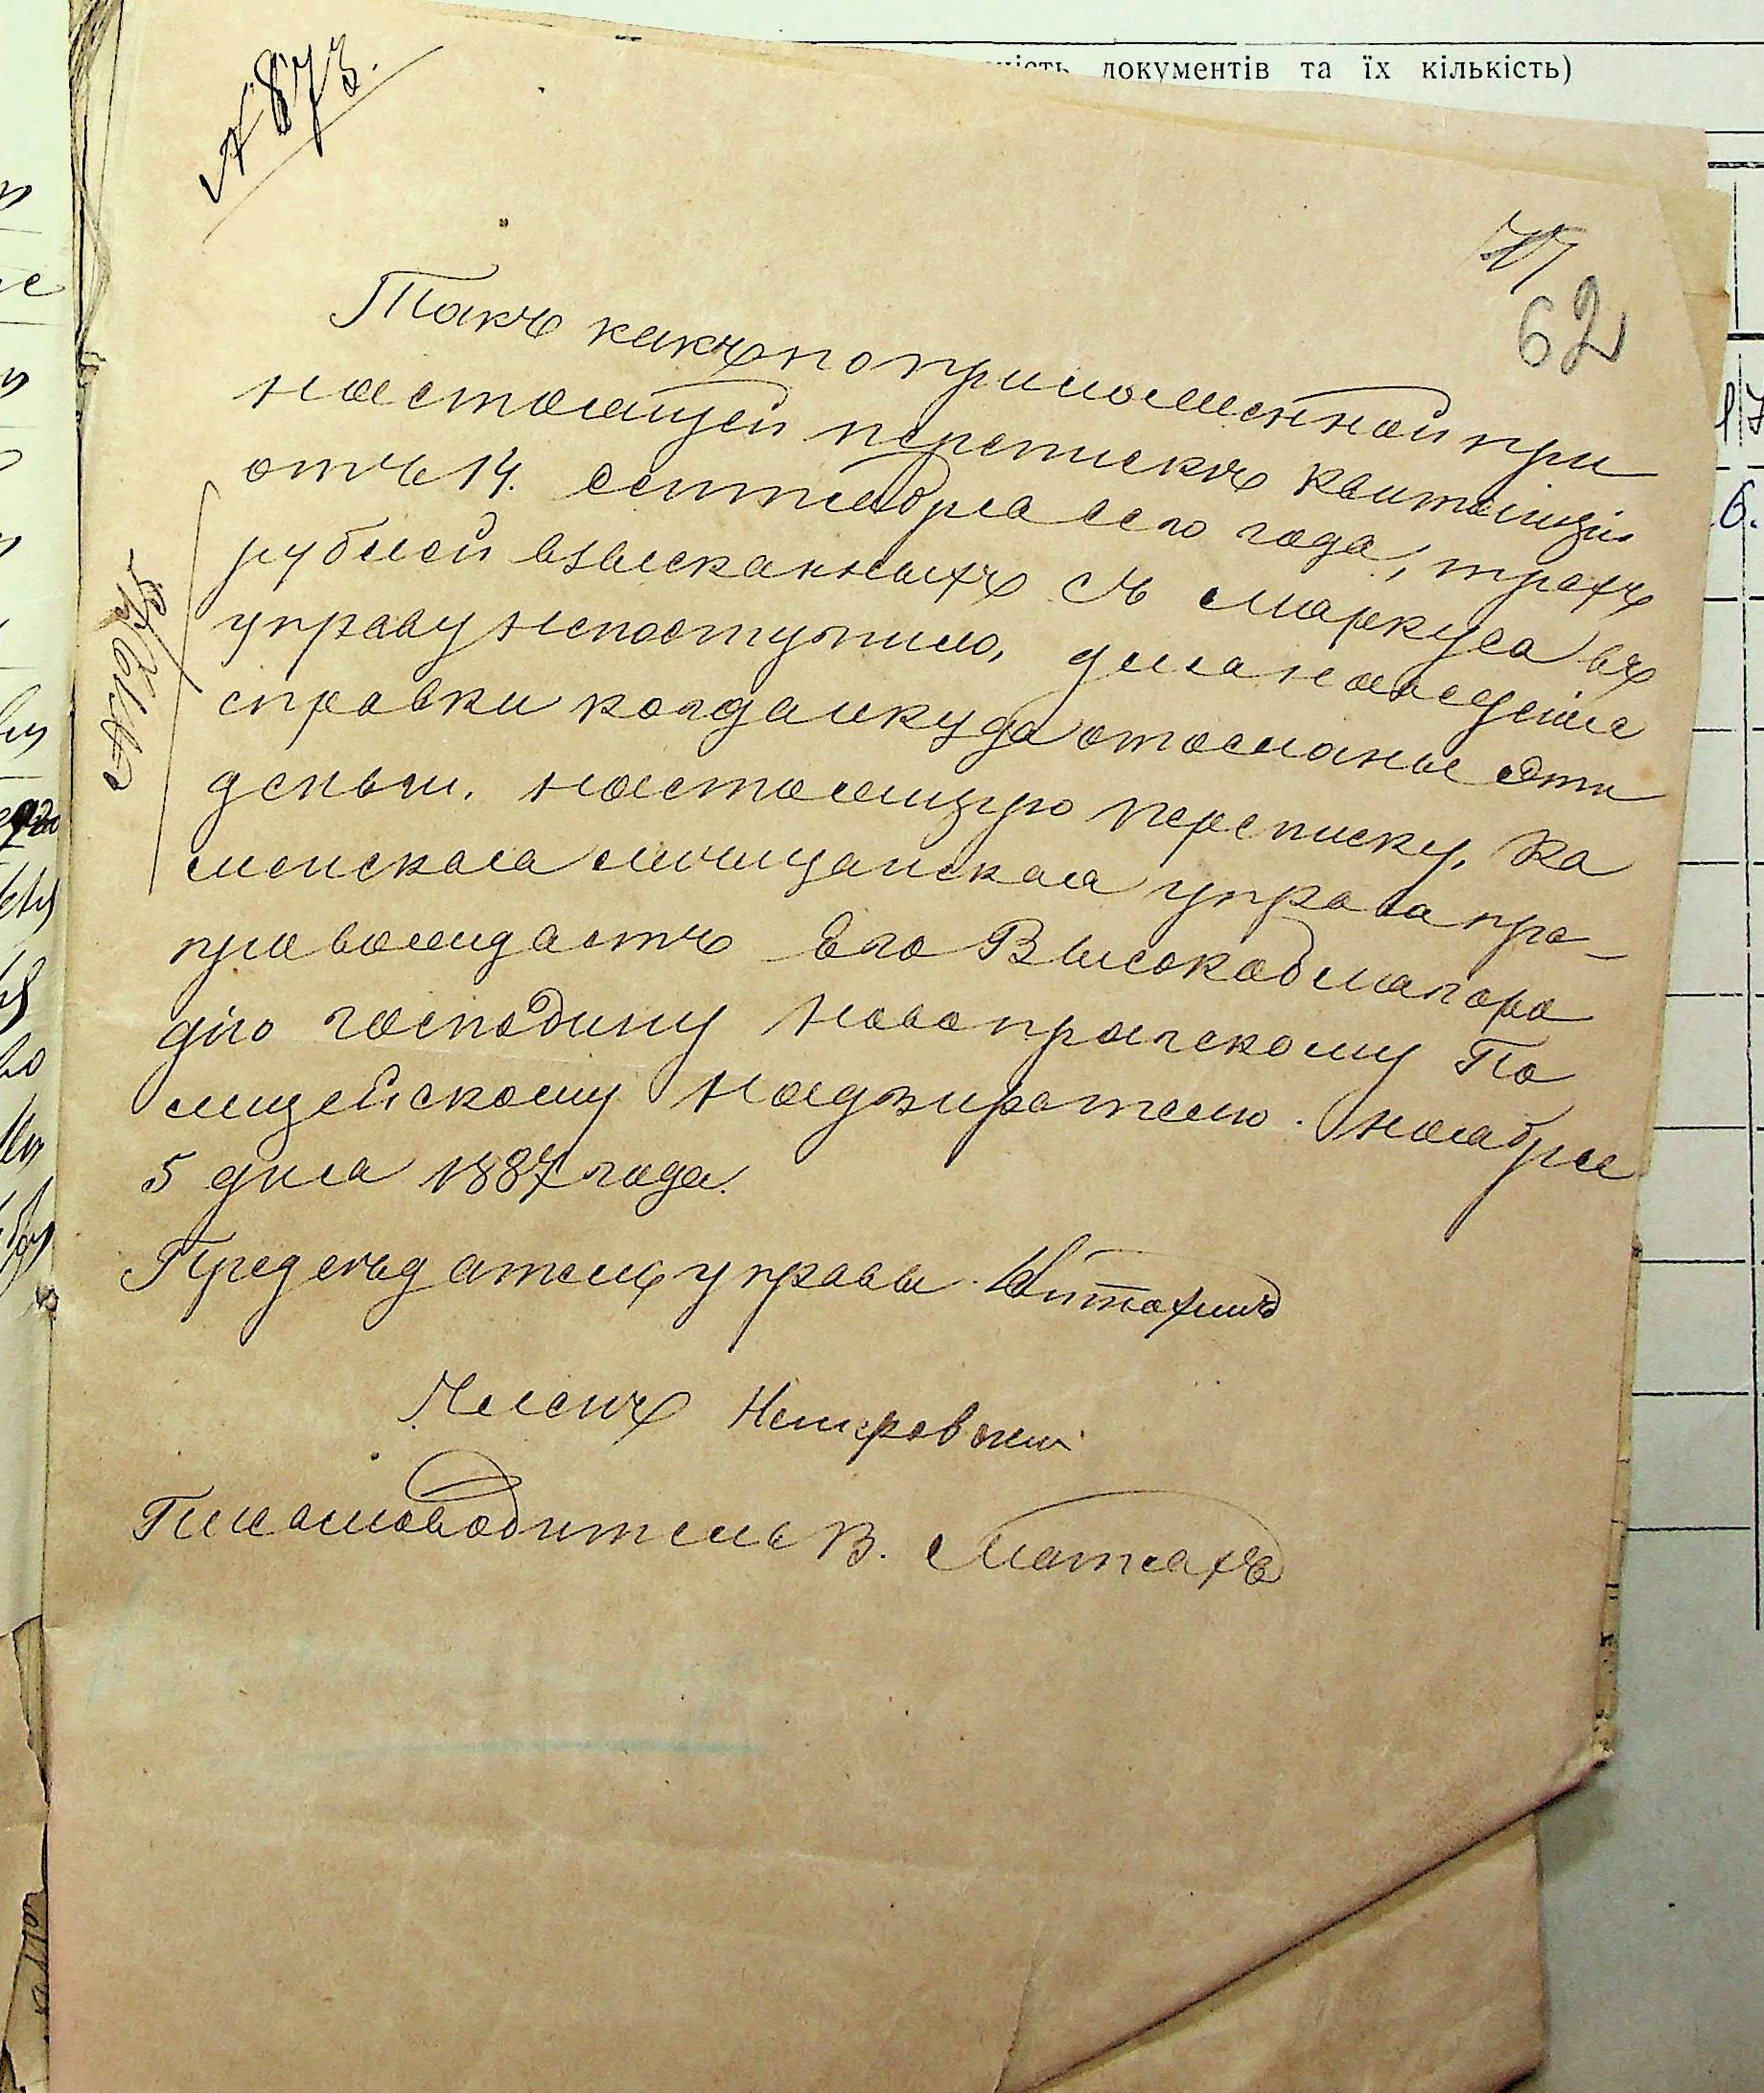 ність документів та їх кількість)
№ 873.
62
Такъ какъ по приложенной при
настоящей перепискѣ квитанціи
отъ 14. сентября сего года, трехъ
рублей взысканныхъ съ Маркуса въ
управу непоступило, для наведенія
справки когда и куда отосланы эти
деньги. настоящую переписку, Ка
менская мещанская управа пре-
провождаетъ Его Высокоблагоро
дію господину Новопрагскому По
лицейскому Надзирателю. Ноября
5 дня 1887 года.
Предсѣдатель управы
Членъ
Писмоводитель В.